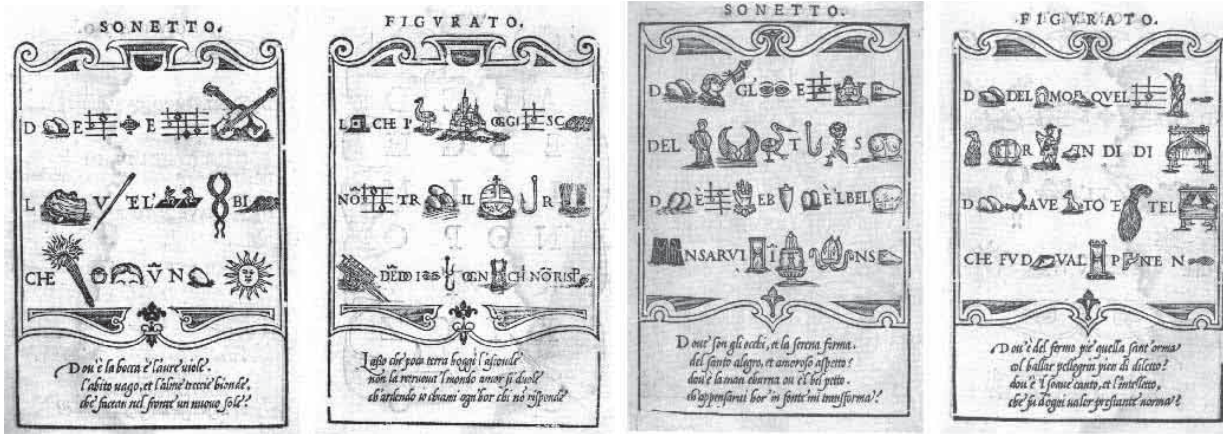 SONETTO.
D E E
L V E L' BI
CHE Ṽ N
Dou'è la bocca è l'aure uiole.
l'abito uago, et l'alme treccie bionde,
che faceau nel fronte un nuouo sole?
FIGVRATO.
L CHE P' OGGI SC
NÕ TR IL R
OGN CHI NÕ RISP
Lasso che poca terra hoggi l'asconde
non la retruoua l'mondo amor si duole
ch'ardendo io chiami ogn'hor chi nõ risponde
SONETTO.
D GL' E
DEL T S
D È EB È L BEL
NSARVI Ĩ NS
Doue son gli occhi, et la serena forma.
del santo alegro, et amoroso aspetto?
dou'è la man eburna ou'è'l bel petto.
ch'appensarui hor in fonte mi transforma?
FIGVRATO.
D DEL MO QVEL
R N DI DI
D AVE TO E TEL
CHE FV D VAL P NTE N
Dou'è del fermo piè quella sant'orma
col ballar pellegrin pien di diletto?
dou'è 'l soaue canto, et l'intelletto,
che fu d'ogni ualor prestante norma?